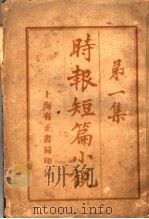 第一集
時報短篇小說
上海有正書局印行